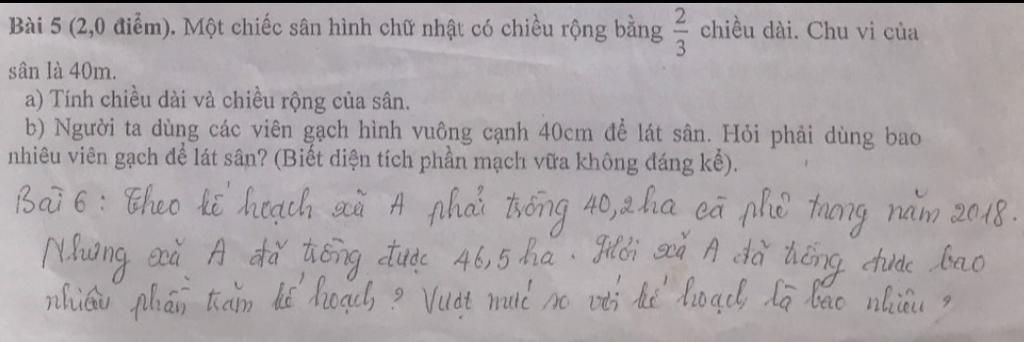 Bài 5 (2,0 điểm). Một chiếc sân hình chữ nhật có chiều rộng bằng 2/3 chiều dài. Chu vi của
sân là 40m.
a) Tính chiều dài và chiều rộng của sân.
b) Người ta dùng các viên gạch hình vuông cạnh 40cm để lát sân. Hỏi phải dùng bao
nhiêu viên gạch để lát sân? (Biết diện tích phần mạch vữa không đáng kể).
Bài 6 : Theo kế hoạch xã A phải trồng 40,2 ha cà phê trong năm 2018.
Nhưng xã A đã trồng được 46,5 ha. Hỏi xã A đã trồng được bao
nhiêu phần trăm kế hoạch ? Vượt mức so với kế hoạch là bao nhiêu ?